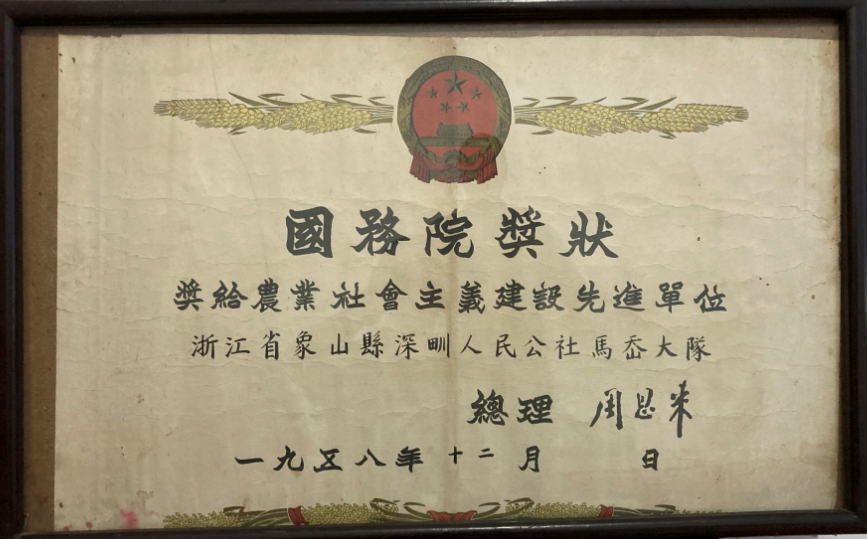 國務院獎狀
獎給農業社會主義建設先進單位
浙江省象山縣深甽人民公社馬岙大隊
總理 周恩来
一九五八年十二月 日